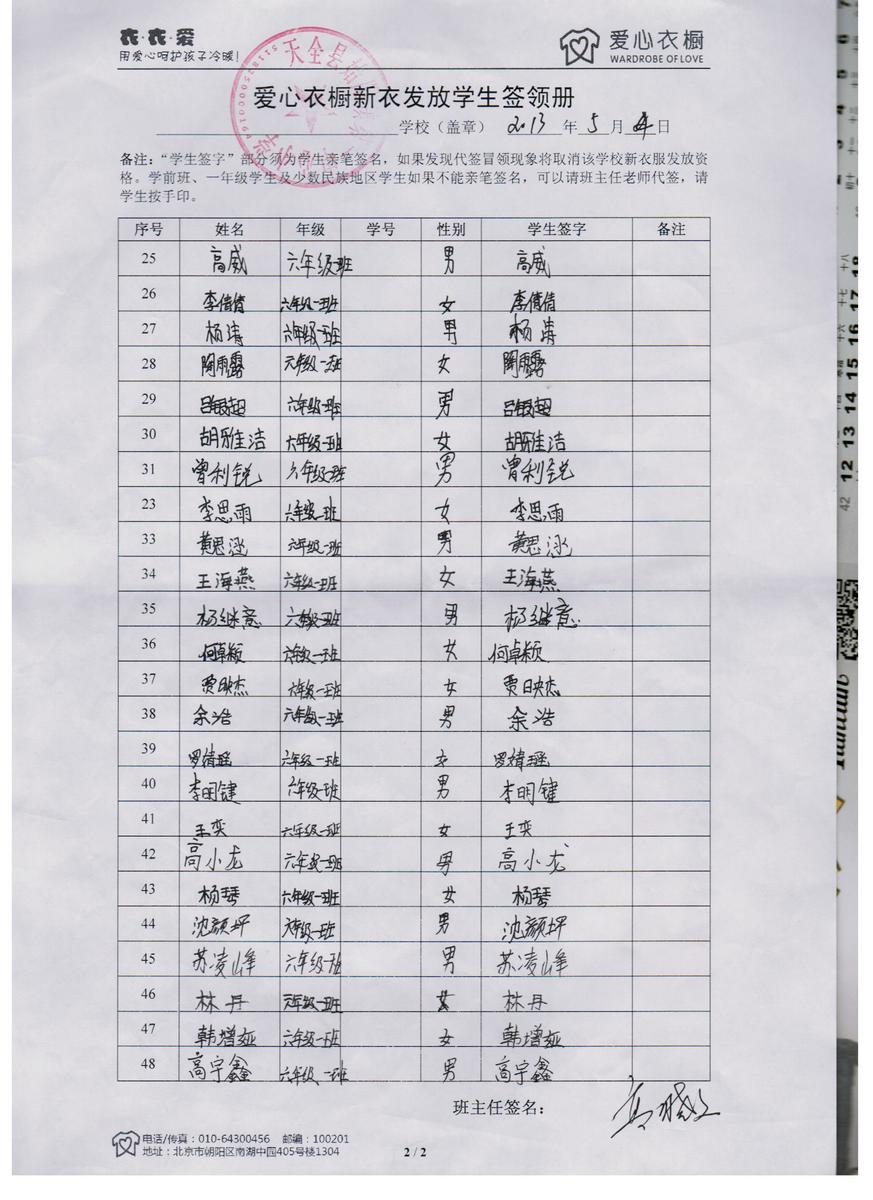 衣·衣·爱
用爱心呵护孩子冷暖!
爱心衣橱
WARDROBE OF LOVE
天全县
爱心衣橱新衣发放学生签领册
学校（盖章） 2013 年 5 月 日
备注：“学生签字”部分须为学生亲笔签名，如果发现代签冒领现象将取消该学校新衣服发放资
格。学前班、一年级学生及少数民族地区学生如果不能亲笔签名，可以请班主任老师代签，请
学生按手印。
序号 姓名 年级 学号 性别 学生签字 备注
25 高威 六年级班 男 高威
26 李倩倩 六年级一班 女 李倩倩
27 杨涛 六年级一班 男 杨涛
28 陶雨露 六年级一班 女 陶雨露
29 吕银超 六年级一班 男 吕银超
30 胡雅洁 六年级一班 女 胡雅洁
31 曾利锐 六年级一班 男 曾利锐
23 李思雨 六年级一班 女 李思雨
33 黄思涵 六年级一班 男 黄思涵
34 王海燕 六年级一班 女 王海燕
35 杨继意 六年级一班 男 杨继意
36 何卓颖 六年级一班 女 何卓颖
37 贾映杰 六年级一班 女 贾映杰
38 余浩 六年级一班 男 余浩
39 罗婧瑶 六年级一班 女
40 李明键 六年级一班 男 李明键
41 王奕 六年级一班 女 王奕
42 高小龙 六年级一班 男 高小龙
43 杨琴 六年级一班 女 杨琴
44 沈颜坪 六年级一班 男 沈颜坪
45 苏凌峰 六年级一班 男 苏凌峰
46 林丹 六年级一班 女 林丹
47 韩增娅 六年级一班 女 韩增娅
48 高宇鑫 六年级一班 男 高宇鑫
班主任签名：
电话/传真：010-64300456 邮编：100201
地址：北京市朝阳区南湖中园405号楼1304
2 / 2
42 12 13 14 15 16 17 18